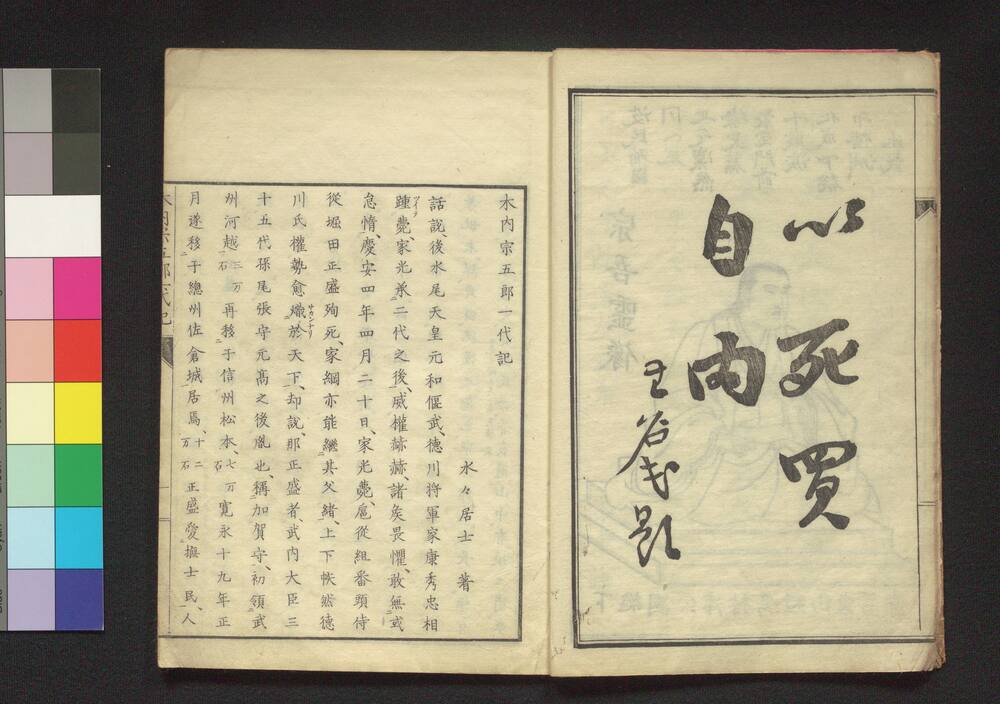 以死買
自由
木内宗五郎一代記
水々居士 著
話説、後水尾天皇元和偃武、德川將軍家康秀忠相
踵薨、家光承二代之後、威權赫赫、諸矦畏懼、敢無或
ツイテ
怠惰、慶安四年四月二十日、家光薨、扈從組番頭侍
從堀田正盛殉死、家綱亦能繼其父緒、上下帙然德
川氏權勢愈熾於天下、却說、那正盛者、武内大臣三
サカンナリ
十五代孫尾張守元高之後胤也、稱加賀守、初領武
州河越三万石再移于信州松本、七万石寛永十九年正
月遂移于總州佐倉城居焉、十二万石正盛愛撫士民、人